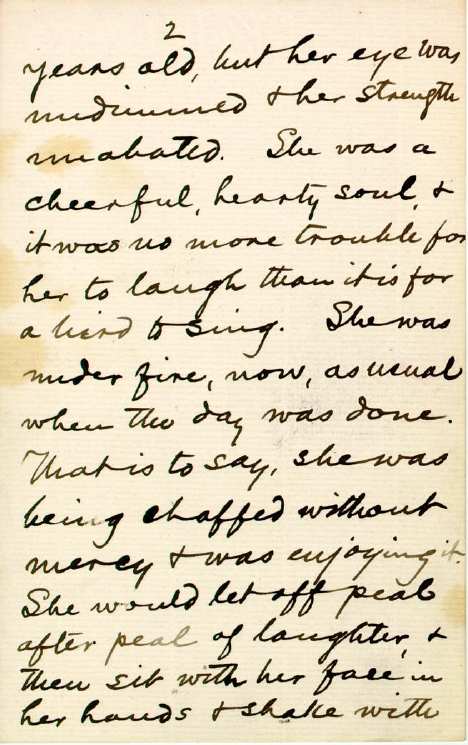 2
years old, but her eye was
undimmed & her strength
unabated. She was a
cheerful, hearty soul, &
it was no more trouble for
her to laugh than it is for
a bird to sing. She was
under fire, now, as usual
when the day was done.
That is to say, she was
being chaffed without
mercy & was enjoying it.
She would let off peal
after peal of laughter, &
then sit with her face in
her hands & shake with